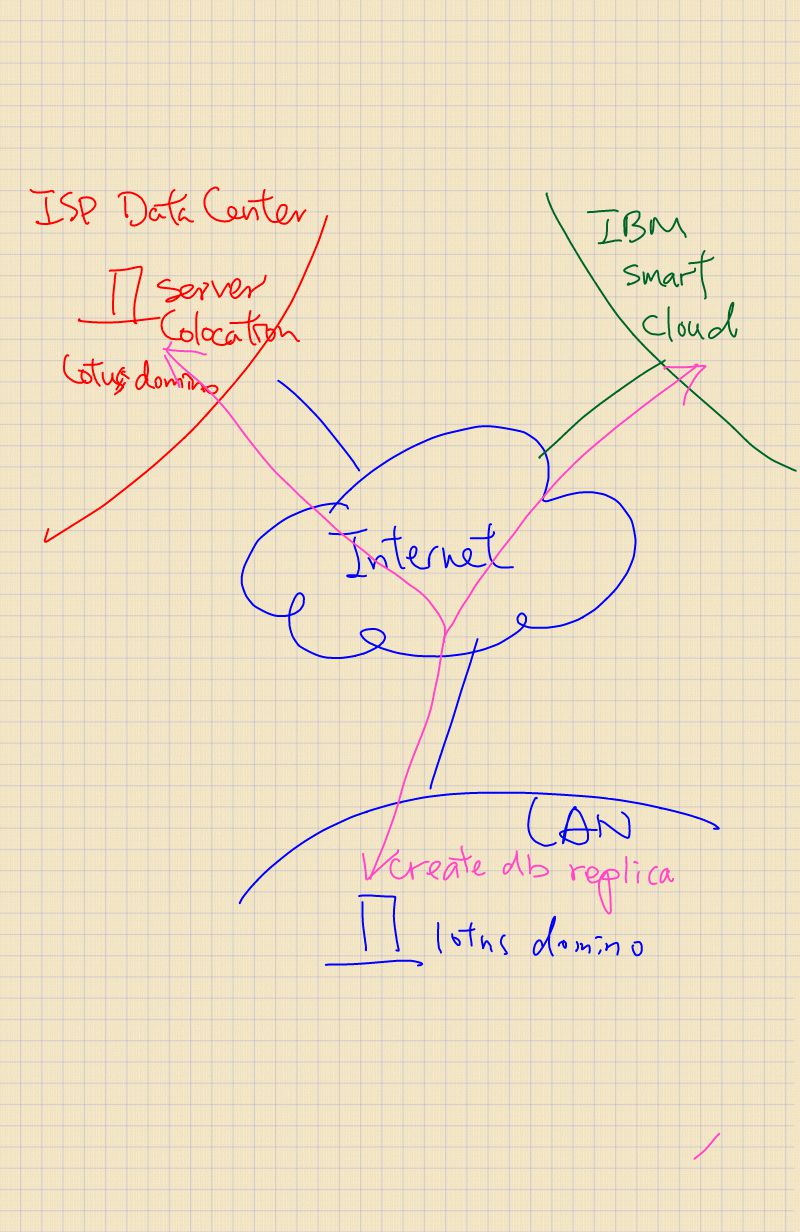 ISP Data Center
server
Colocation
Lotus domino
IBM
smart
cloud
Internet
LAN
create db replica
lotus domino